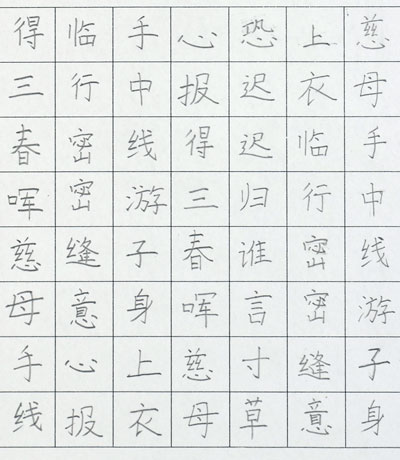 慈母手中线游子身
上衣临行密密缝意
恐迟迟归谁言寸草
心报得三春晖慈母
手中线游子身上衣
临行密密缝意心报
得三春晖慈母手线